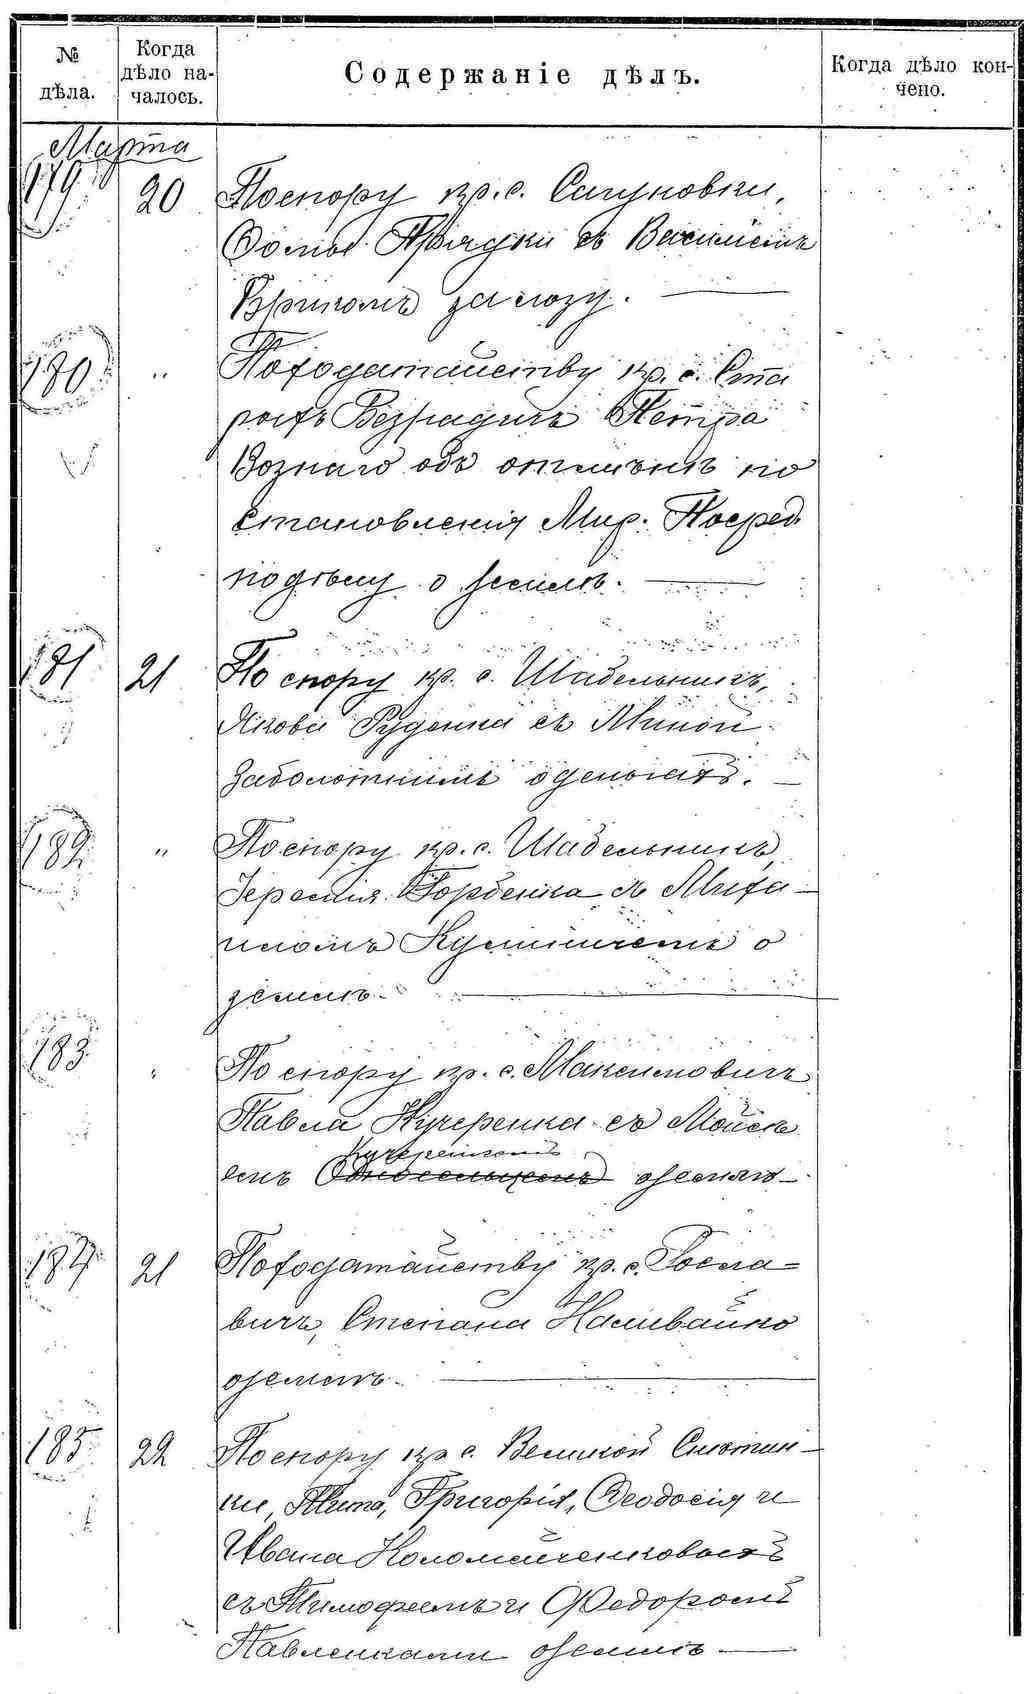 № дѣла.
Когда дѣло на-
чалось.
Содержаніе дѣлъ.
Когда дѣло кон-
чено.
Марта
179 20 По спору кр. с. Сагуновки,
Ѳомы Прядки съ Василіемъ
за лозу.
180 " По ходатайству кр. с. Ста
рыхъ Безрадичъ Петра
Вознаго объ отмѣнѣ по
становленія Мир. Посред.
по дѣлу о землѣ.
181 21 По спору кр. с. Шабельникъ,
Якова Руденка съ Миной
Заболотнимъ о деньгахъ.
182 " По спору кр. с. Шабельникъ,
Іеремія Горбенка съ Миха-
иломъ о
землѣ.
183 " По спору кр. с. Максимовичъ
Павла Кучеренка съ Мойсѣ
емъ Кучеренкомъ
Односельцемъ о землю
184 21 По ходатайству кр. с. Росла=
вичъ, Степана Наливайко
о землѣ.
185 22 По спору кр. с. Великой Снетин-
ки, Тита, Григорія, Ѳеодосія и
Ивана Коломѣйченковыхъ
съ Тимофеемъ и Федоромъ
Павленками о землѣ